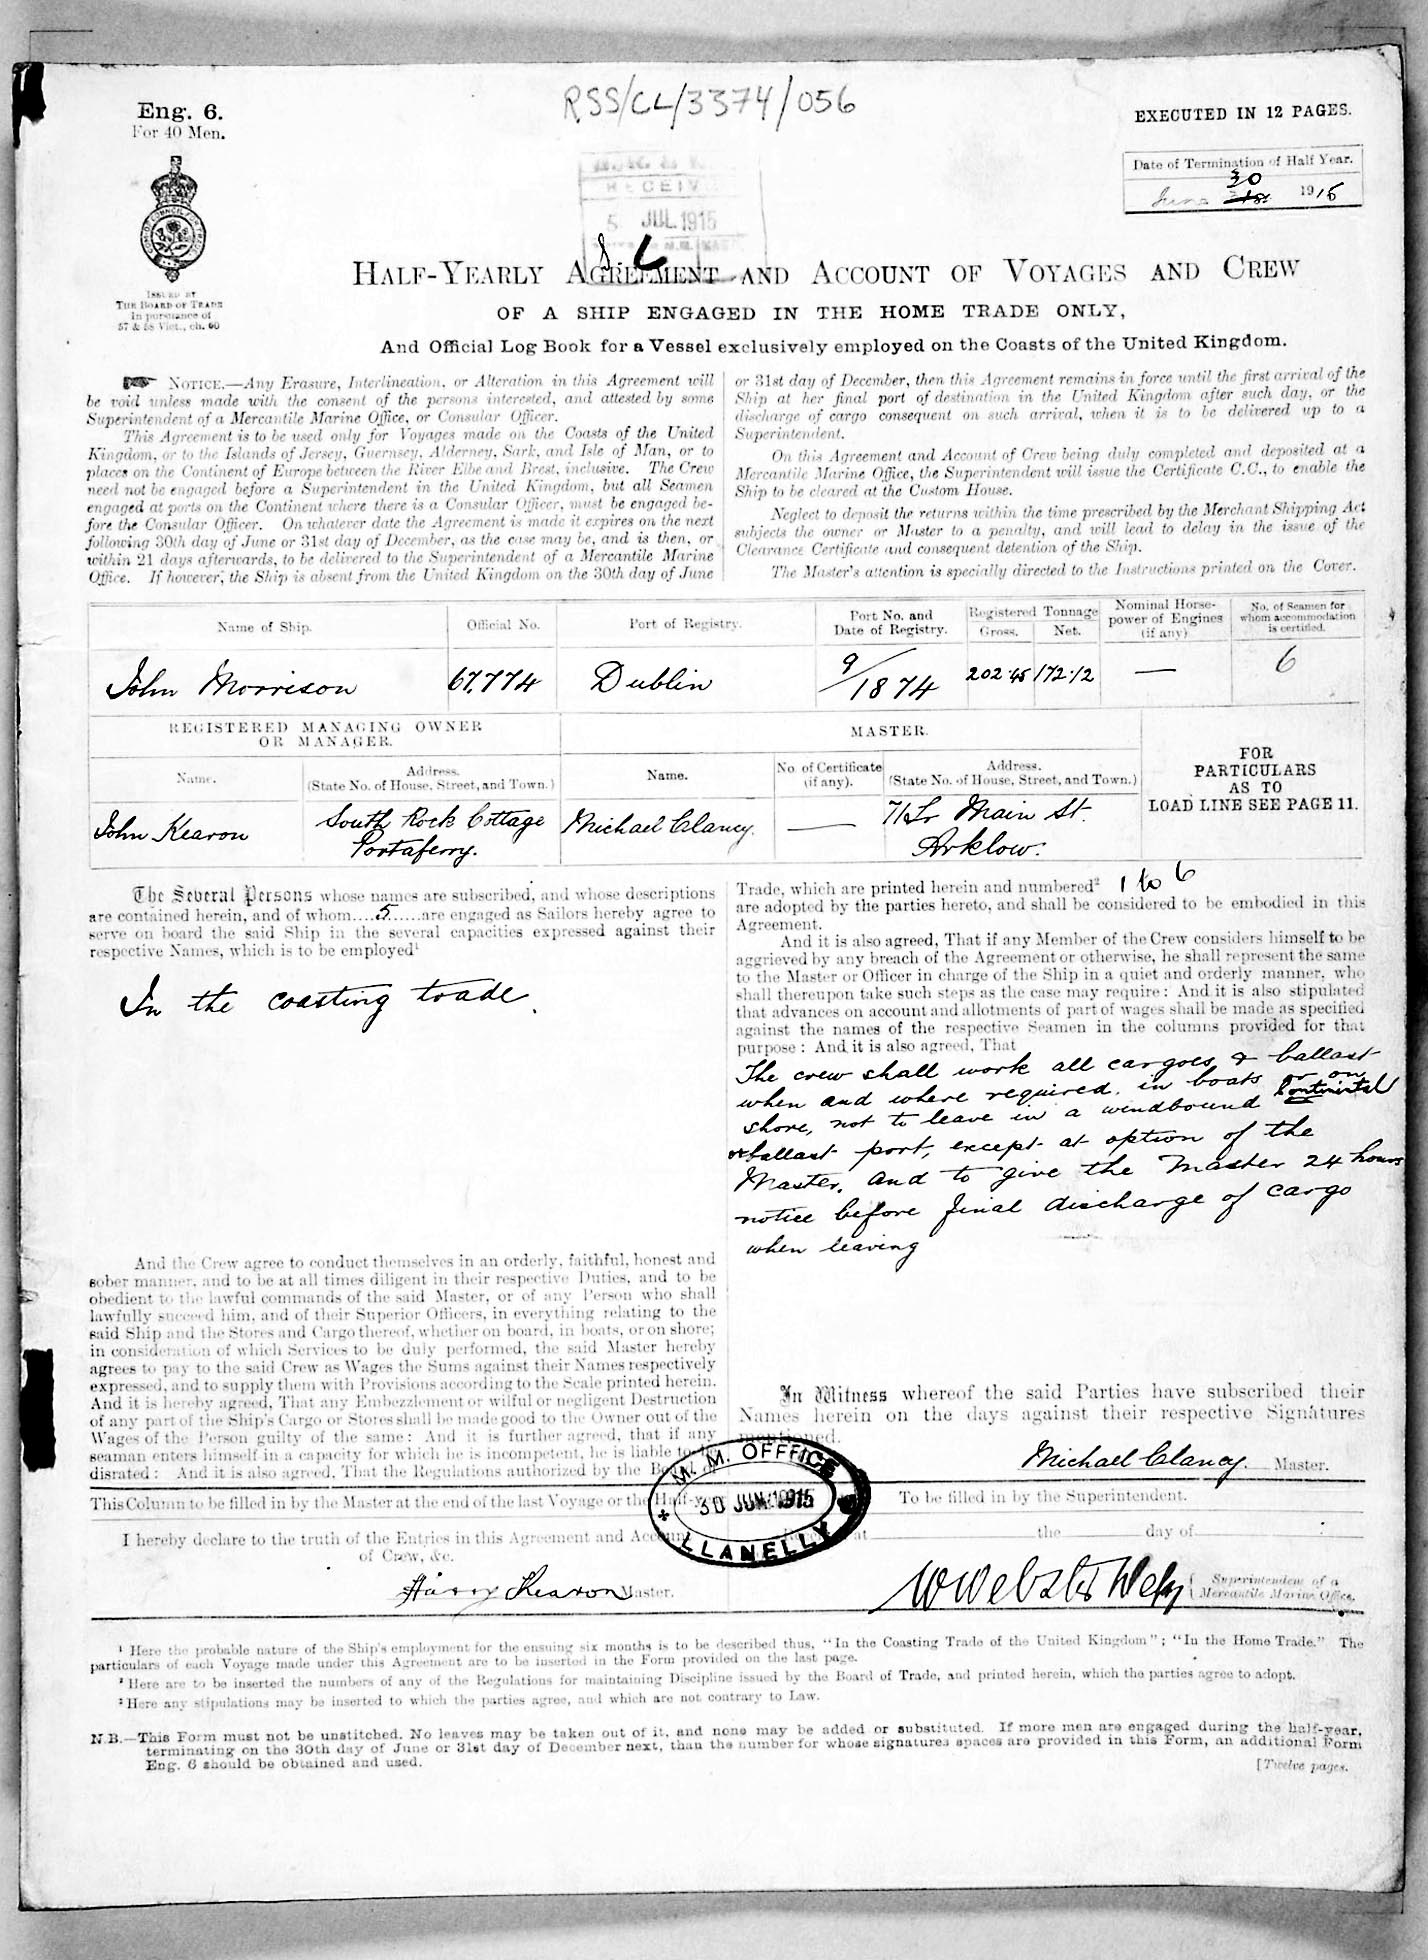 RSS/CL/3374/056
Eng. 6.
For 40 Men.
EXECUTED IN 12 PAGES.
Date of Termination of Half Year.
30
June 1915
RECEIV
5 JUL 1915
ISSUED BY
THE BOARD OF TRADE
In pursuance of
57 & 58 Vict., ch. 60
HALF-YEARLY AGREEMENT AND ACCOUNT OF VOYAGES AND CREW
OF A SHIP ENGAGED IN THE HOME TRADE ONLY,
And Official Log Book for a Vessel exclusively employed on the Coasts of the United Kingdom.
NOTICE.—Any Erasure, Interlineation, or Alteration in this Agreement will
be void unless made with the consent of the persons interested, and attested by some
Superintendent of a Mercantile Marine Office, or Consular Officer.
This Agreement is to be used only for Voyages made on the Coasts of the United
Kingdom, or to the Islands of Jersey, Guernsey, Alderney, Sark, and Isle of Man, or to
places on the Continent of Europe between the River Elbe and Brest, inclusive. The Crew
need not be engaged before a Superintendent in the United Kingdom, but all Seamen
engaged at ports on the Continent where there is a Consular Officer, must be engaged be-
fore the Consular Officer. On whatever date the Agreement is made it expires on the next
following 30th day of June or 31st day of December, as the case may be, and is then, or
within 21 days afterwards, to be delivered to the Superintendent of a Mercantile Marine
Office. If however, the Ship is absent from the United Kingdom on the 30th day of June
or 31st day of December, then this Agreement remains in force until the first arrival of the
Ship at her final port of destination in the United Kingdom after such day, or the
discharge of cargo consequent on such arrival, when it is to be delivered up to a
Superintendent.
On this Agreement and Account of Crew being duly completed and deposited at a
Mercantile Marine Office, the Superintendent will issue the Certificate C.C., to enable the
Ship to be cleared at the Custom House.
Neglect to deposit the returns within the time prescribed by the Merchant Shipping Act
subjects the owner or Master to a penalty, and will lead to delay in the issue of the
Clearance Certificate and consequent detention of the Ship.
The Master's attention is specially directed to the Instructions printed on the Cover.
Name of Ship. Official No. Port of Registry. Port No. and Date of Registry. Registered Tonnage Gross. Net. Nominal Horse-power of Engines (if any) No. of Seamen for whom accommodation is certified.
John Morrison 67,774 Dublin 9/1874 202.45 172.12 — 6
REGISTERED MANAGING OWNER
OR MANAGER.
MASTER.
Name. Address. (State No. of House, Street, and Town.) Name. No. of Certificate (if any). Address. (State No. of House, Street, and Town.)
FOR
PARTICULARS
AS TO
LOAD LINE SEE PAGE 11.
John Kearon South Rock Cottage Portaferry. Michael Clancy. — 71 Lr Main St. Arklow.
The Several Persons whose names are subscribed, and whose descriptions
are contained herein, and of whom....5......are engaged as Sailors hereby agree to
serve on board the said Ship in the several capacities expressed against their
respective Names, which is to be employed¹
In the coasting trade.
And the Crew agree to conduct themselves in an orderly, faithful, honest and
sober manner, and to be at all times diligent in their respective Duties, and to be
obedient to the lawful commands of the said Master, or of any Person who shall
lawfully succeed him, and of their Superior Officers, in everything relating to the
said Ship and the Stores and Cargo thereof, whether on board, in boats, or on shore;
in consideration of which Services to be duly performed, the said Master hereby
agrees to pay to the said Crew as Wages the Sums against their Names respectively
expressed, and to supply them with Provisions according to the Scale printed herein.
And it is hereby agreed, That any Embezzlement or wilful or negligent Destruction
of any part of the Ship's Cargo or Stores shall be made good to the Owner out of the
Wages of the Person guilty of the same: And it is further agreed, that if any
seaman enters himself in a capacity for which he is incompetent, he is liable to be
disrated: And it is also agreed, That the Regulations authorized by the Board of
Trade, which are printed herein and numbered² 1 to 6
are adopted by the parties hereto, and shall be considered to be embodied in this
Agreement.
And it is also agreed, That if any Member of the Crew considers himself to be
aggrieved by any breach of the Agreement or otherwise, he shall represent the same
to the Master or Officer in charge of the Ship in a quiet and orderly manner, who
shall thereupon take such steps as the case may require: And it is also stipulated
that advances on account and allotments of part of wages shall be made as specified
against the names of the respective Seamen in the columns provided for that
purpose: And it is also agreed, That
The crew shall work all cargoes & ballast
when and where required, in boats or on
shore, not to leave in a windbound Continental
or ballast port, except at option of the
Master, and to give the Master 24 hours
notice before final discharge of cargo
when leaving
In Witness whereof the said Parties have subscribed their
Names herein on the days against their respective Signatures
mentioned.
Michael Clancy. Master.
M. M. OFFFICE
30 JUN 1915
LLANELLY
This Column to be filled in by the Master at the end of the last Voyage or the Half-y
I hereby declare to the truth of the Entries in this Agreement and Account
of Crew, &c.
Harry Kearon Master.
To be filled in by the Superintendent.
at the day of
W Webster Depy Superintendent of a
Mercantile Marine Office.
¹ Here the probable nature of the Ship's employment for the ensuing six months is to be described thus, "In the Coasting Trade of the United Kingdom"; "In the Home Trade." The
particulars of each Voyage made under this Agreement are to be inserted in the Form provided on the last page.
² Here are to be inserted the numbers of any of the Regulations for maintaining Discipline issued by the Board of Trade, and printed herein, which the parties agree to adopt.
³ Here any stipulations may be inserted to which the parties agree, and which are not contrary to Law.
N.B.—This Form must not be unstitched. No leaves may be taken out of it, and none may be added or substituted. If more men are engaged during the half-year,
terminating on the 30th day of June or 31st day of December next, than the number for whose signatures spaces are provided in this Form, an additional Form
Eng. 6 should be obtained and used.
[Twelve pages.